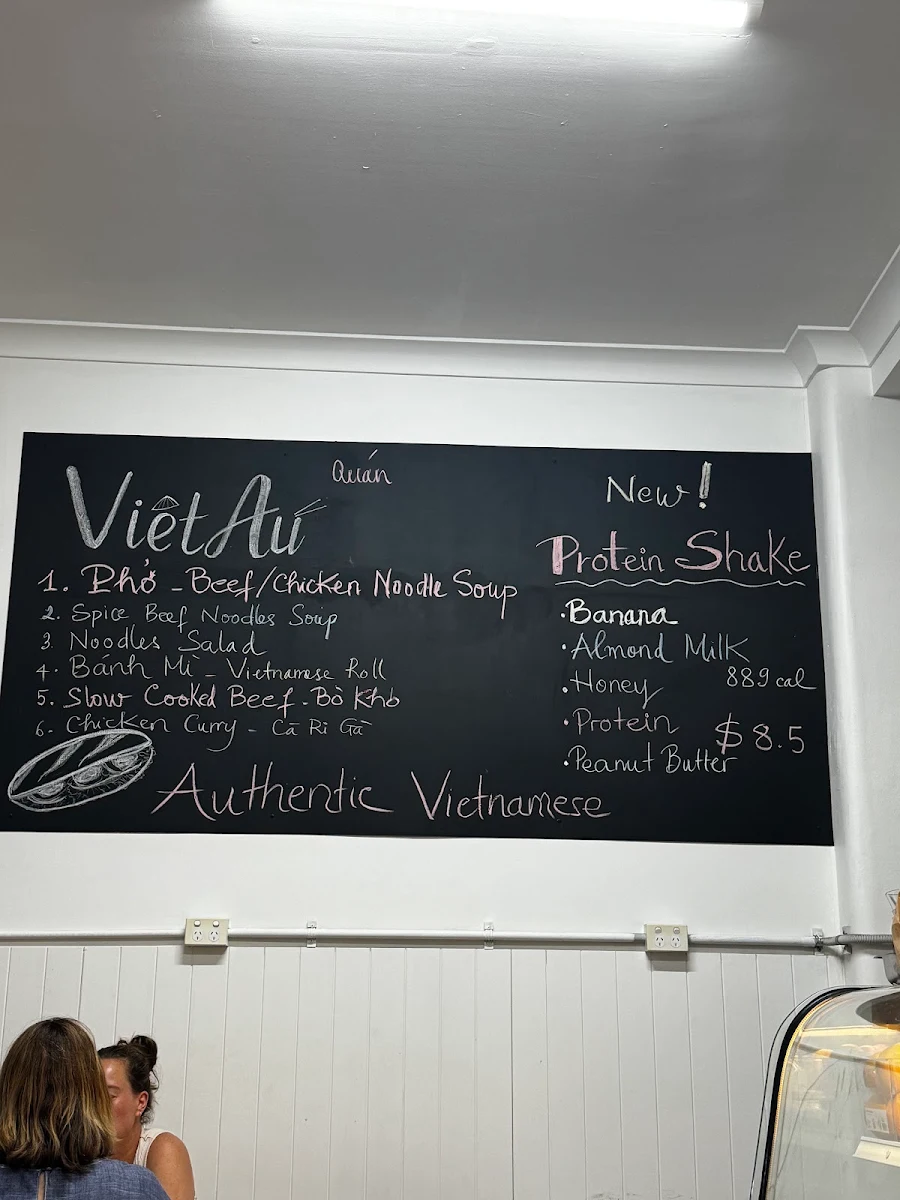 Quán
Việt Aú
1. Phở - Beef/Chicken Noodle Soup
2. Spice Beef Noodles Soup
3. Noodles Salad
4. Bánh Mì - Vietnamese Roll
5. Slow Cooked Beef - Bò Khò
6. Chicken Curry - Cà Ri Gà
Authentic Vietnamese
New!
Protein Shake
• Banana
• Almond Milk
• Honey
889 cal
• Protein
$8.5
• Peanut Butter